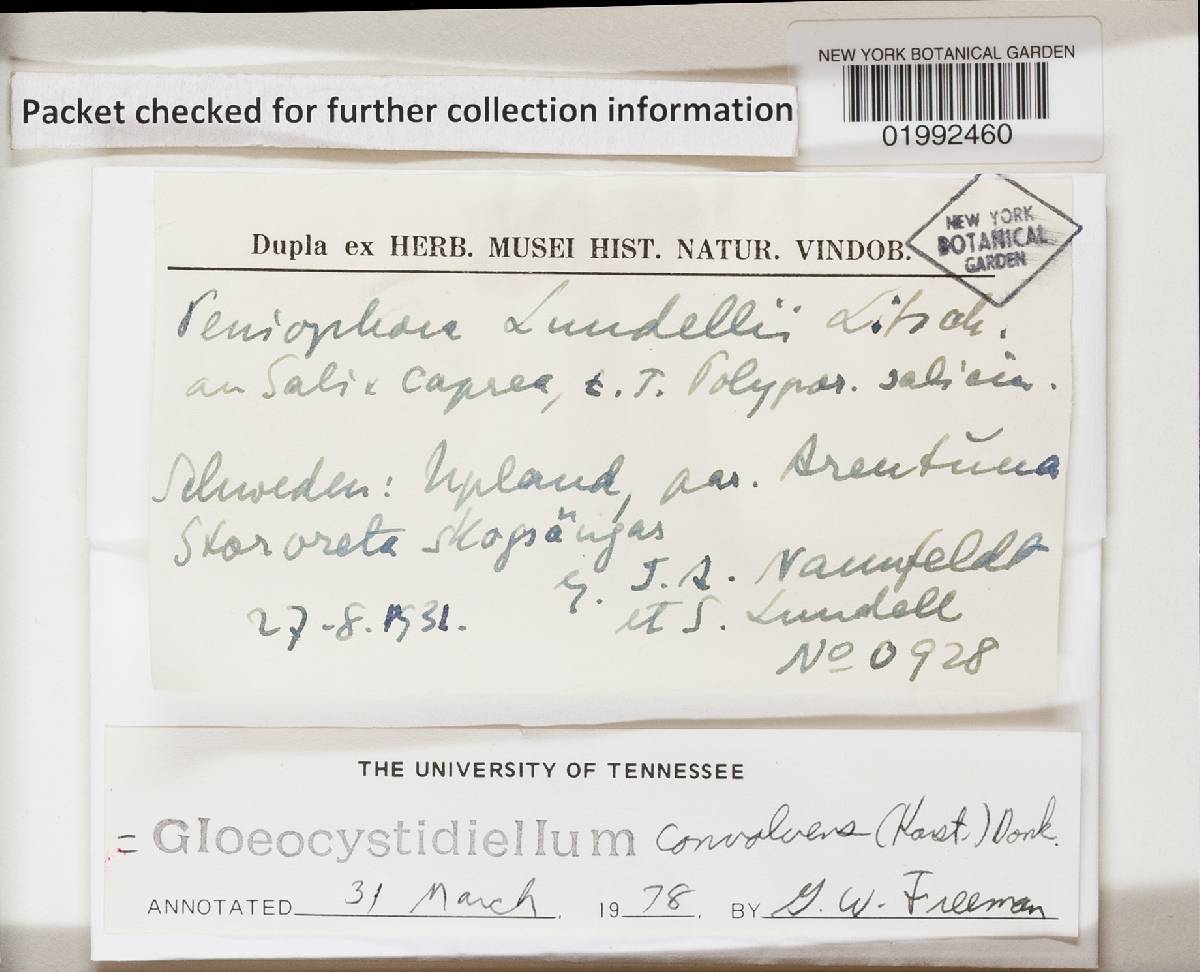 NEW YORK BOTANICAL GARDEN
01992460
Packet checked for further collection information
NEW YORK
BOTANICAL
GARDEN
Dupla ex HERB. MUSEI HIST. NATUR. VINDOB.
Peniophora Lundellii Litsch.
an Salix caprea, c. T. Polypor. salicin.
Schweden: Upland, par. Ärentuna
Storvreta skogsängar
27-8.1931.
J. A. Nannfeldt
et S. Lundell
No 0928
THE UNIVERSITY OF TENNESSEE
= Gloeocystidiellum convolvens (Karst.) Donk.
ANNOTATED 31 March, 1978, BY G. W. Freeman